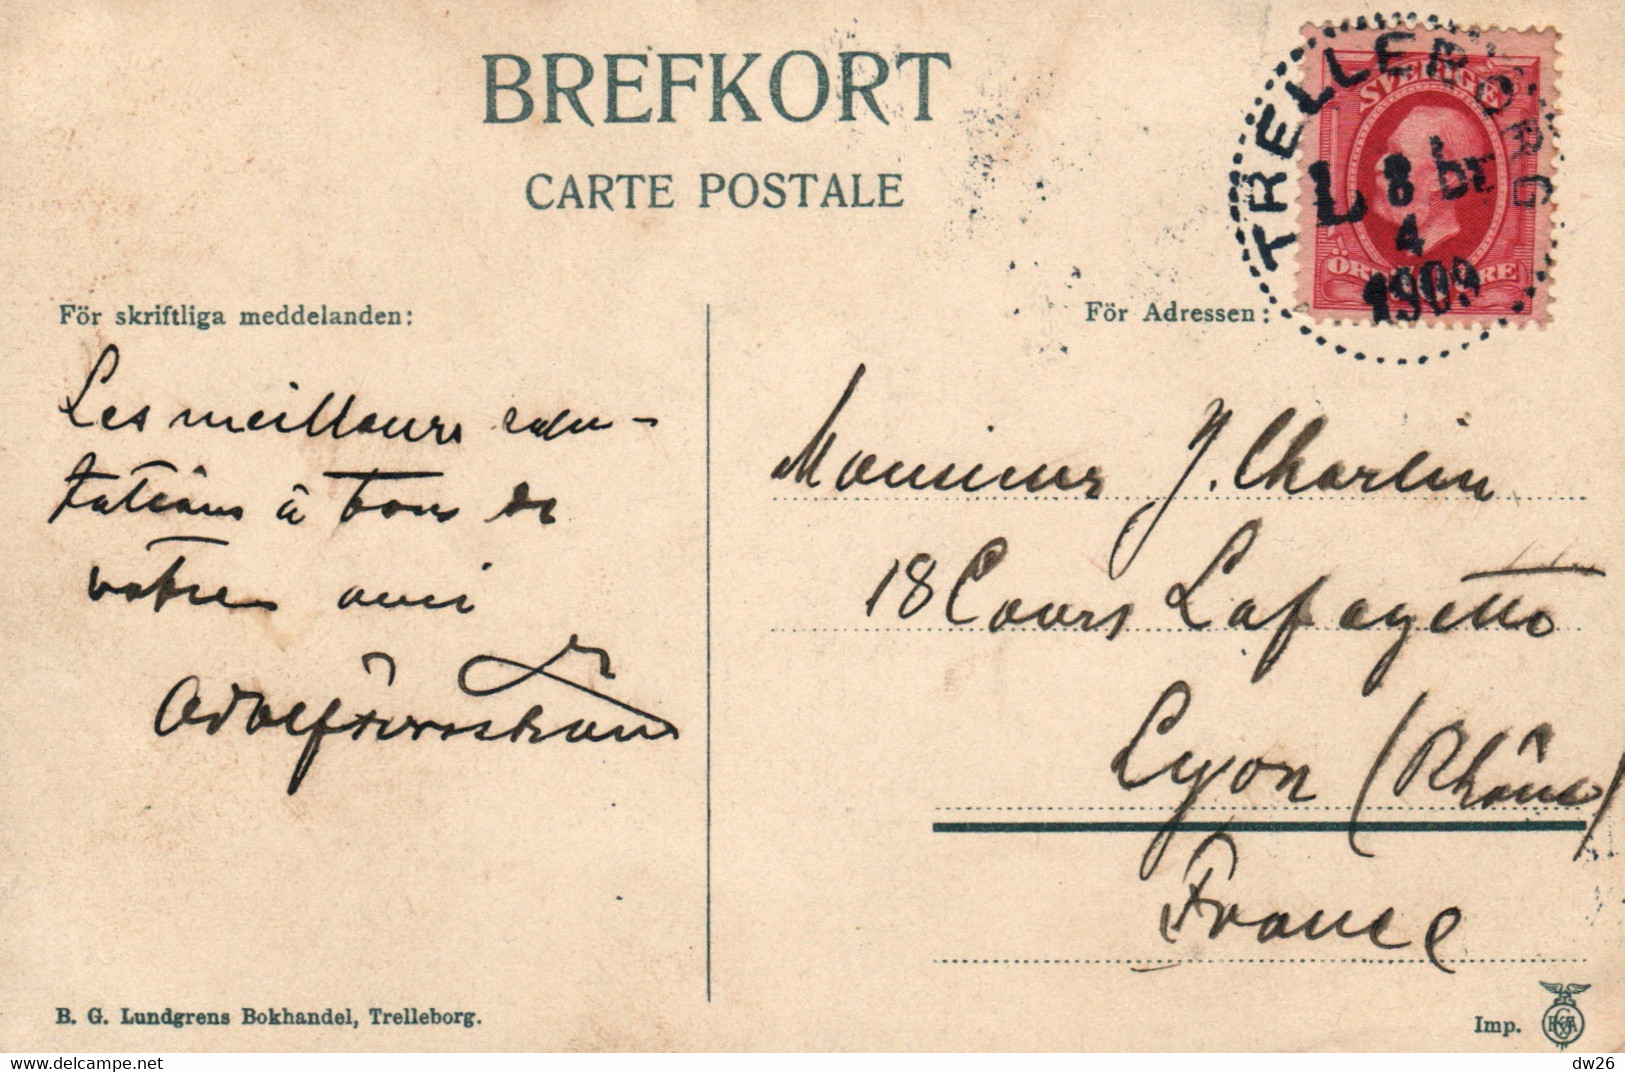 BREFKORT
CARTE POSTALE
TRELLEBORG
8
4
1909
SVERIGE
För skriftliga meddelanden:
För Adressen:
Les meilleurs salu-
tations à tous de
votre ami
Adolf
Monsieur J. Charlin
18 Cours Lafayette
Lyon (Rhône)
France
B. G. Lundgrens Bokhandel, Trelleborg.
Imp.
dw26